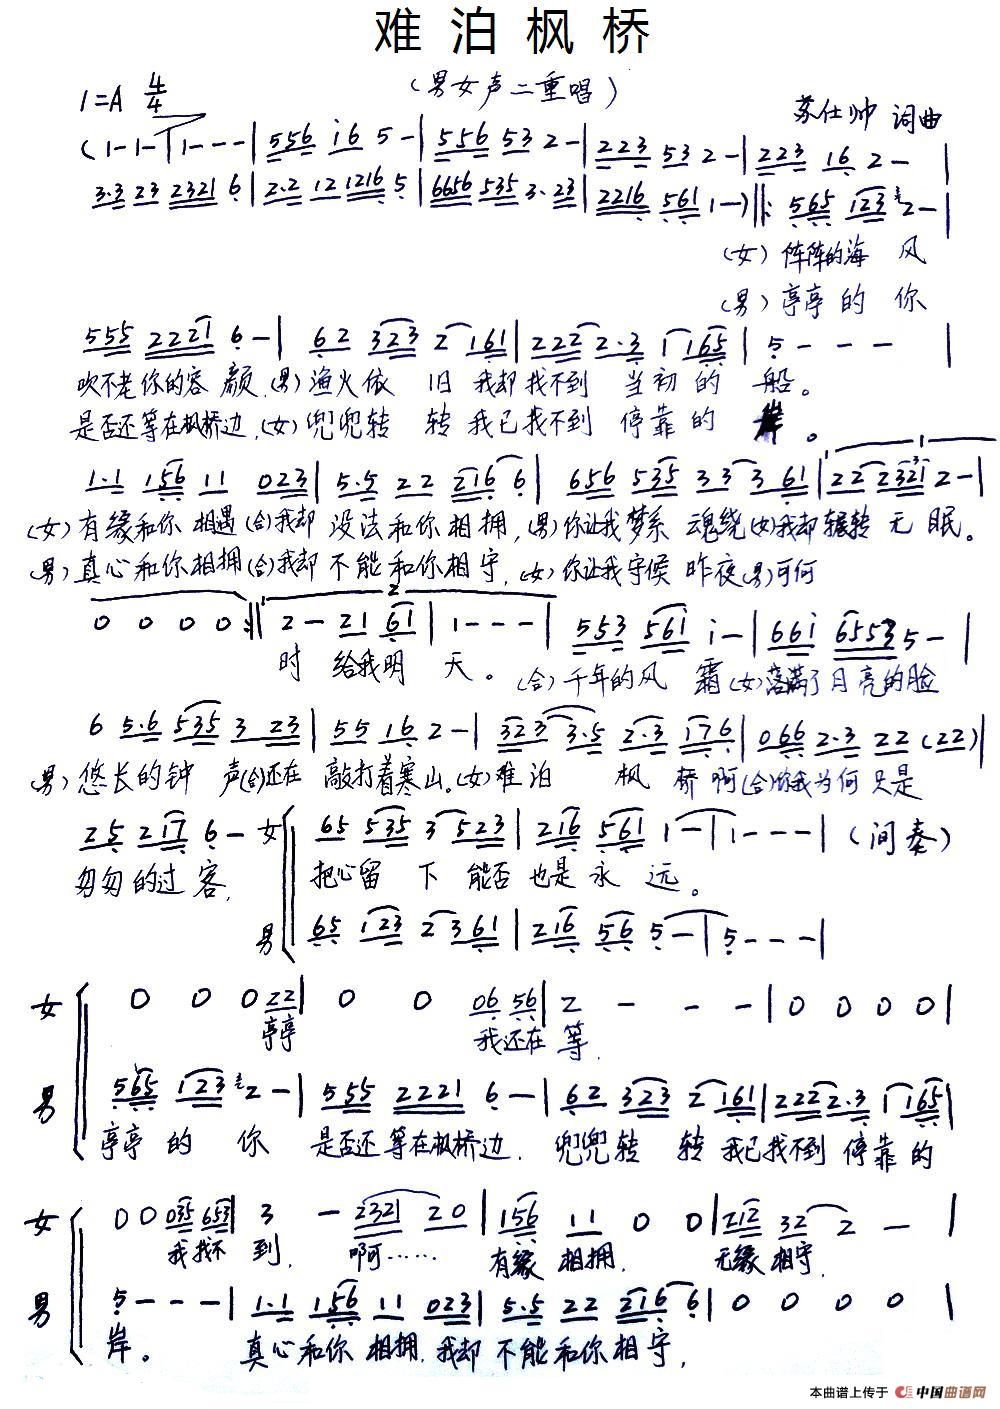 难泊枫桥
(男女声二重唱)
1=A 4/4
苏仕帅 词曲
(1-1-|1---|556 i6 5-|556 53 2-|223 53 2-|223 16 2-|
3·3 23 2321 6|2·2 12 1216 5|6656 535 3·23|2216 561 1-)‖:565 123 2-|
(女)阵阵的海 风
(男)亭亭的 你
555 2221 6-|62 323 2 161|222 2·3 1 165|5---|
吹不老你的容颜,(男)渔火依 旧 我却找不到 当初的 船。
是否还等在枫桥边,(女)兜兜转 转 我已找不到 停靠的 岸。
1·1 156 11 023|5·5 22 216 6|656 535 33 3 61|22 2321 2-|
(女)有缘和你 相遇(合)我却 没法和你相拥,(男)你让我梦系 魂绕(女)我却辗转无眠。
(男)真心和你相拥(合)我却不能和你相守,(女)你让我守候 昨夜(男)可何
0 0 0 0:‖2-21 61|1---|553 561 i-|66i 6553 5-|
时 给我明 天。(合)千年的风 霜(女)落满了月亮的脸
6 5·6 535 3 23|55 16 2-|323 3·5 2·3 176|066 2·3 22 (22)|
男)悠长的钟 声(合)还在 敲打着寒山。(女)难泊 枫 桥啊(合)你我为何只是
25 217 6- 女 65 535 3 523|216 561 1-|1---|(间奏)
匆匆的过客, 把心留 下 能否也是永 远。
男 65 123 2361|216 56 5-|5---|
女 0 0 0 22|0 0 06 56|2 - - -|0 0 0 0|
亭亭 我还在 等,
男 565 123 2-|555 2221 6-|62 323 2 161|222 2·3 1 165|
亭亭的 你 是否还等在枫桥边, 兜兜转 转 我已找不到 停靠的
女 0 0 035 653|3 - 2321 20|156 11 0 0|212 32 2 -|
我找不 到, 啊…… 有缘 相拥, 无缘相守,
男 5---|1·1 156 11 023|5·5 22 216 6|0 0 0 0|
岸。 真心和你 相拥,我却 不能和你相守,
本曲谱上传于 中国曲谱网